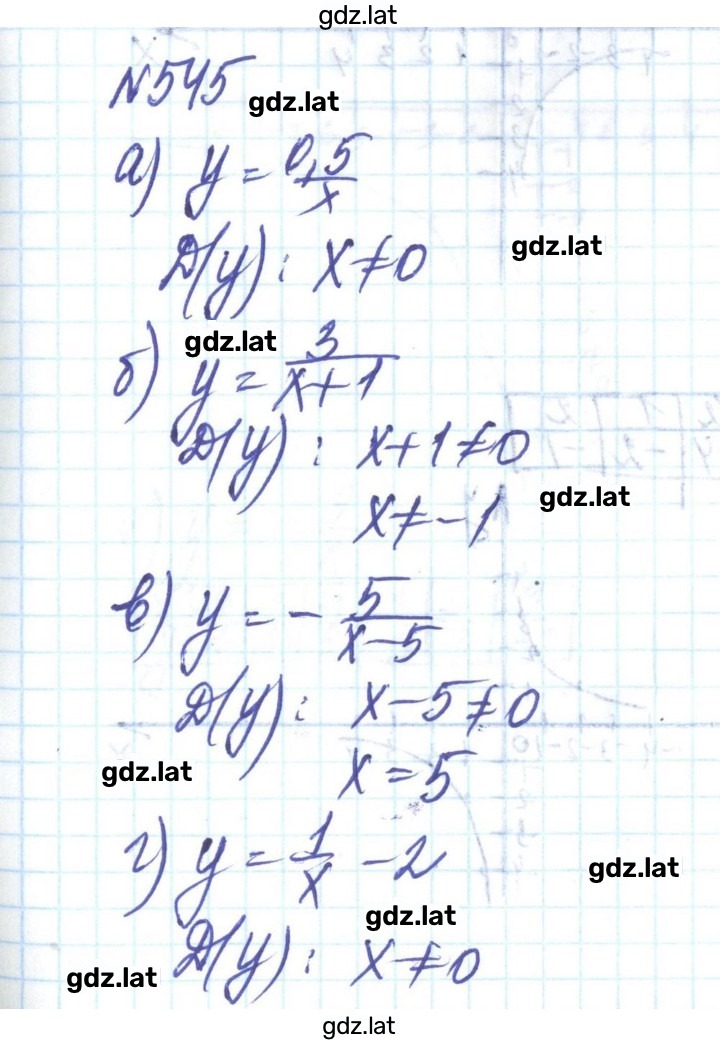 gdz.lat
№545
gdz.lat
а) y = 0,5/x
gdz.lat
Д(y): x ≠ 0
gdz.lat
б) y = 3/(x+1)
Д(y): x+1 ≠ 0
gdz.lat
x ≠ -1
в) y = - 5/(x-5)
Д(y): x-5 ≠ 0
gdz.lat
x = 5
г) y = 1/x - 2
gdz.lat
gdz.lat
Д(y): x ≠ 0
gdz.lat
gdz.lat